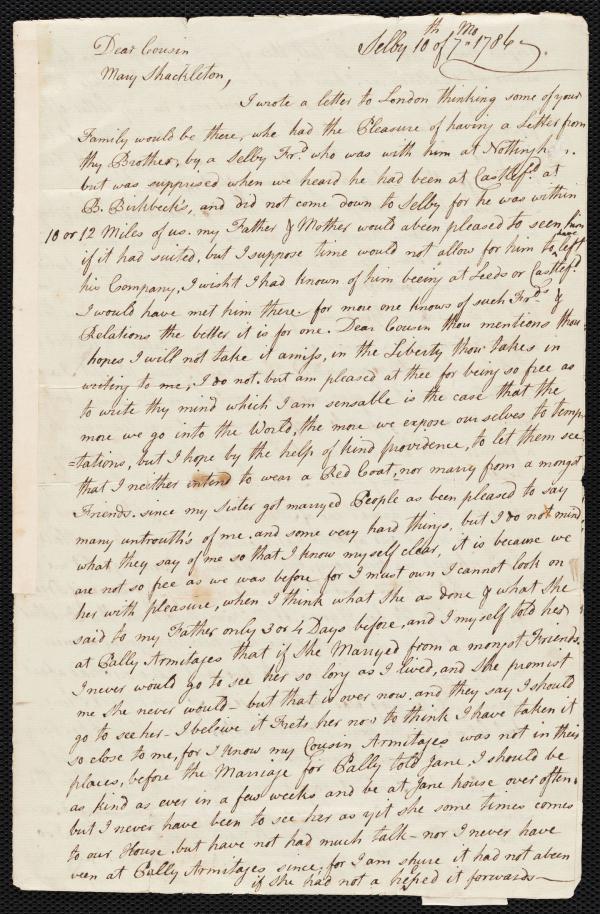 Dear Cousin
Selby 10th of 7th Mo 1786
Mary Shackleton,
I wrote a letter to London thinking some of your
Family would be there, who had the Pleasure of having a Letter from
thy Brother, by a Selby Frd who was with him at Nottingh
but was suprised when we heard he had been at Castlefd at
B. Birkbeck's, and did not come down to Selby for he was within
10 or 12 Miles of us. my Father & Mother would abeen pleased to seen him
if it had suited, but I suppose time would not allow for him to have left
his Company, I wisht I had known of him beeing at Leeds or Castlefd
I would have met him there for more one knows of such Frds &
Relations the better it is for one. Dear Cousin thou mentions thou
hopes I will not take it amiss, in the Liberty thou takes in
writing to me, I do not. but am pleased at thee for being so free as
to write thy mind which I am sensable is the case that the
more we go into the World, the more we expose ourselves to temp
=tations, but I hope by the help of kind providence, to let them see
that I neither intend to wear a Red Coat, nor marry from a mongst
Friends. since my Sister got marryed People as been pleased to say
many untrouth's of me. and some very hard things, but I do not mind
what they say of me so that I know myself clear, it is because we
are not so free as we was before for I must own I cannot look on
her with pleasure, when I think what she as done & what she
said to my Father only 3 or 4 Days before, and I myself told her
at Pally Armitages that if she Marryed from a mongst Friends
I never would go to see her so long as I lived, and she promist
me she never would - but that is over now, and they say I should
go to see her - I beleive it Frets her now to think I have taken it
so close to me, for I know my Cousin Armitages was not in their
places, before the Marriage for Pally told Jane, I should be
as kind as ever in a few weeks and be at Jane house over often,
but I never have been to see her as yit she some times comes
to our House but have not had much talk - nor I never have
veen at Pally Armitages since, for I am shure it had not abeen
if she had not a helped it forwards -